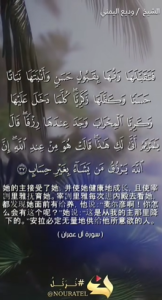 الشيخ / وديع اليمني
فَتَقَبَّلَهَا رَبُّهَا بِقَبُولٍ حَسَنٍ وَأَنۢبَتَهَا نَبَاتًا
حَسَنًا وَكَفَّلَهَا زَكَرِيَّا كُلَّمَا دَخَلَ عَلَيْهَا
زَكَرِيَّا ٱلْمِحْرَابَ وَجَدَ عِندَهَا رِزْقًا قَالَ
يَٰمَرْيَمُ أَنَّىٰ لَكِ هَٰذَا قَالَتْ هُوَ مِنْ عِندِ ٱللَّهِ إِنَّ
ٱللَّهَ يَرْزُقُ مَن يَشَآءُ بِغَيْرِ حِسَابٍ ٣٧
她的主接受了她，并使她健康地成长，且使宰
因里雅抚育她。宰因里雅每次进内殿去看她，
都发现她面前有给养，他说：“麦尔彦啊！你怎
么会有这个呢？”她说：“这是从我的主那里降
下的。”安拉必定无量地供给他所意欲的人。
( سورة آل عمران )
#نورتل
@NOURATEL